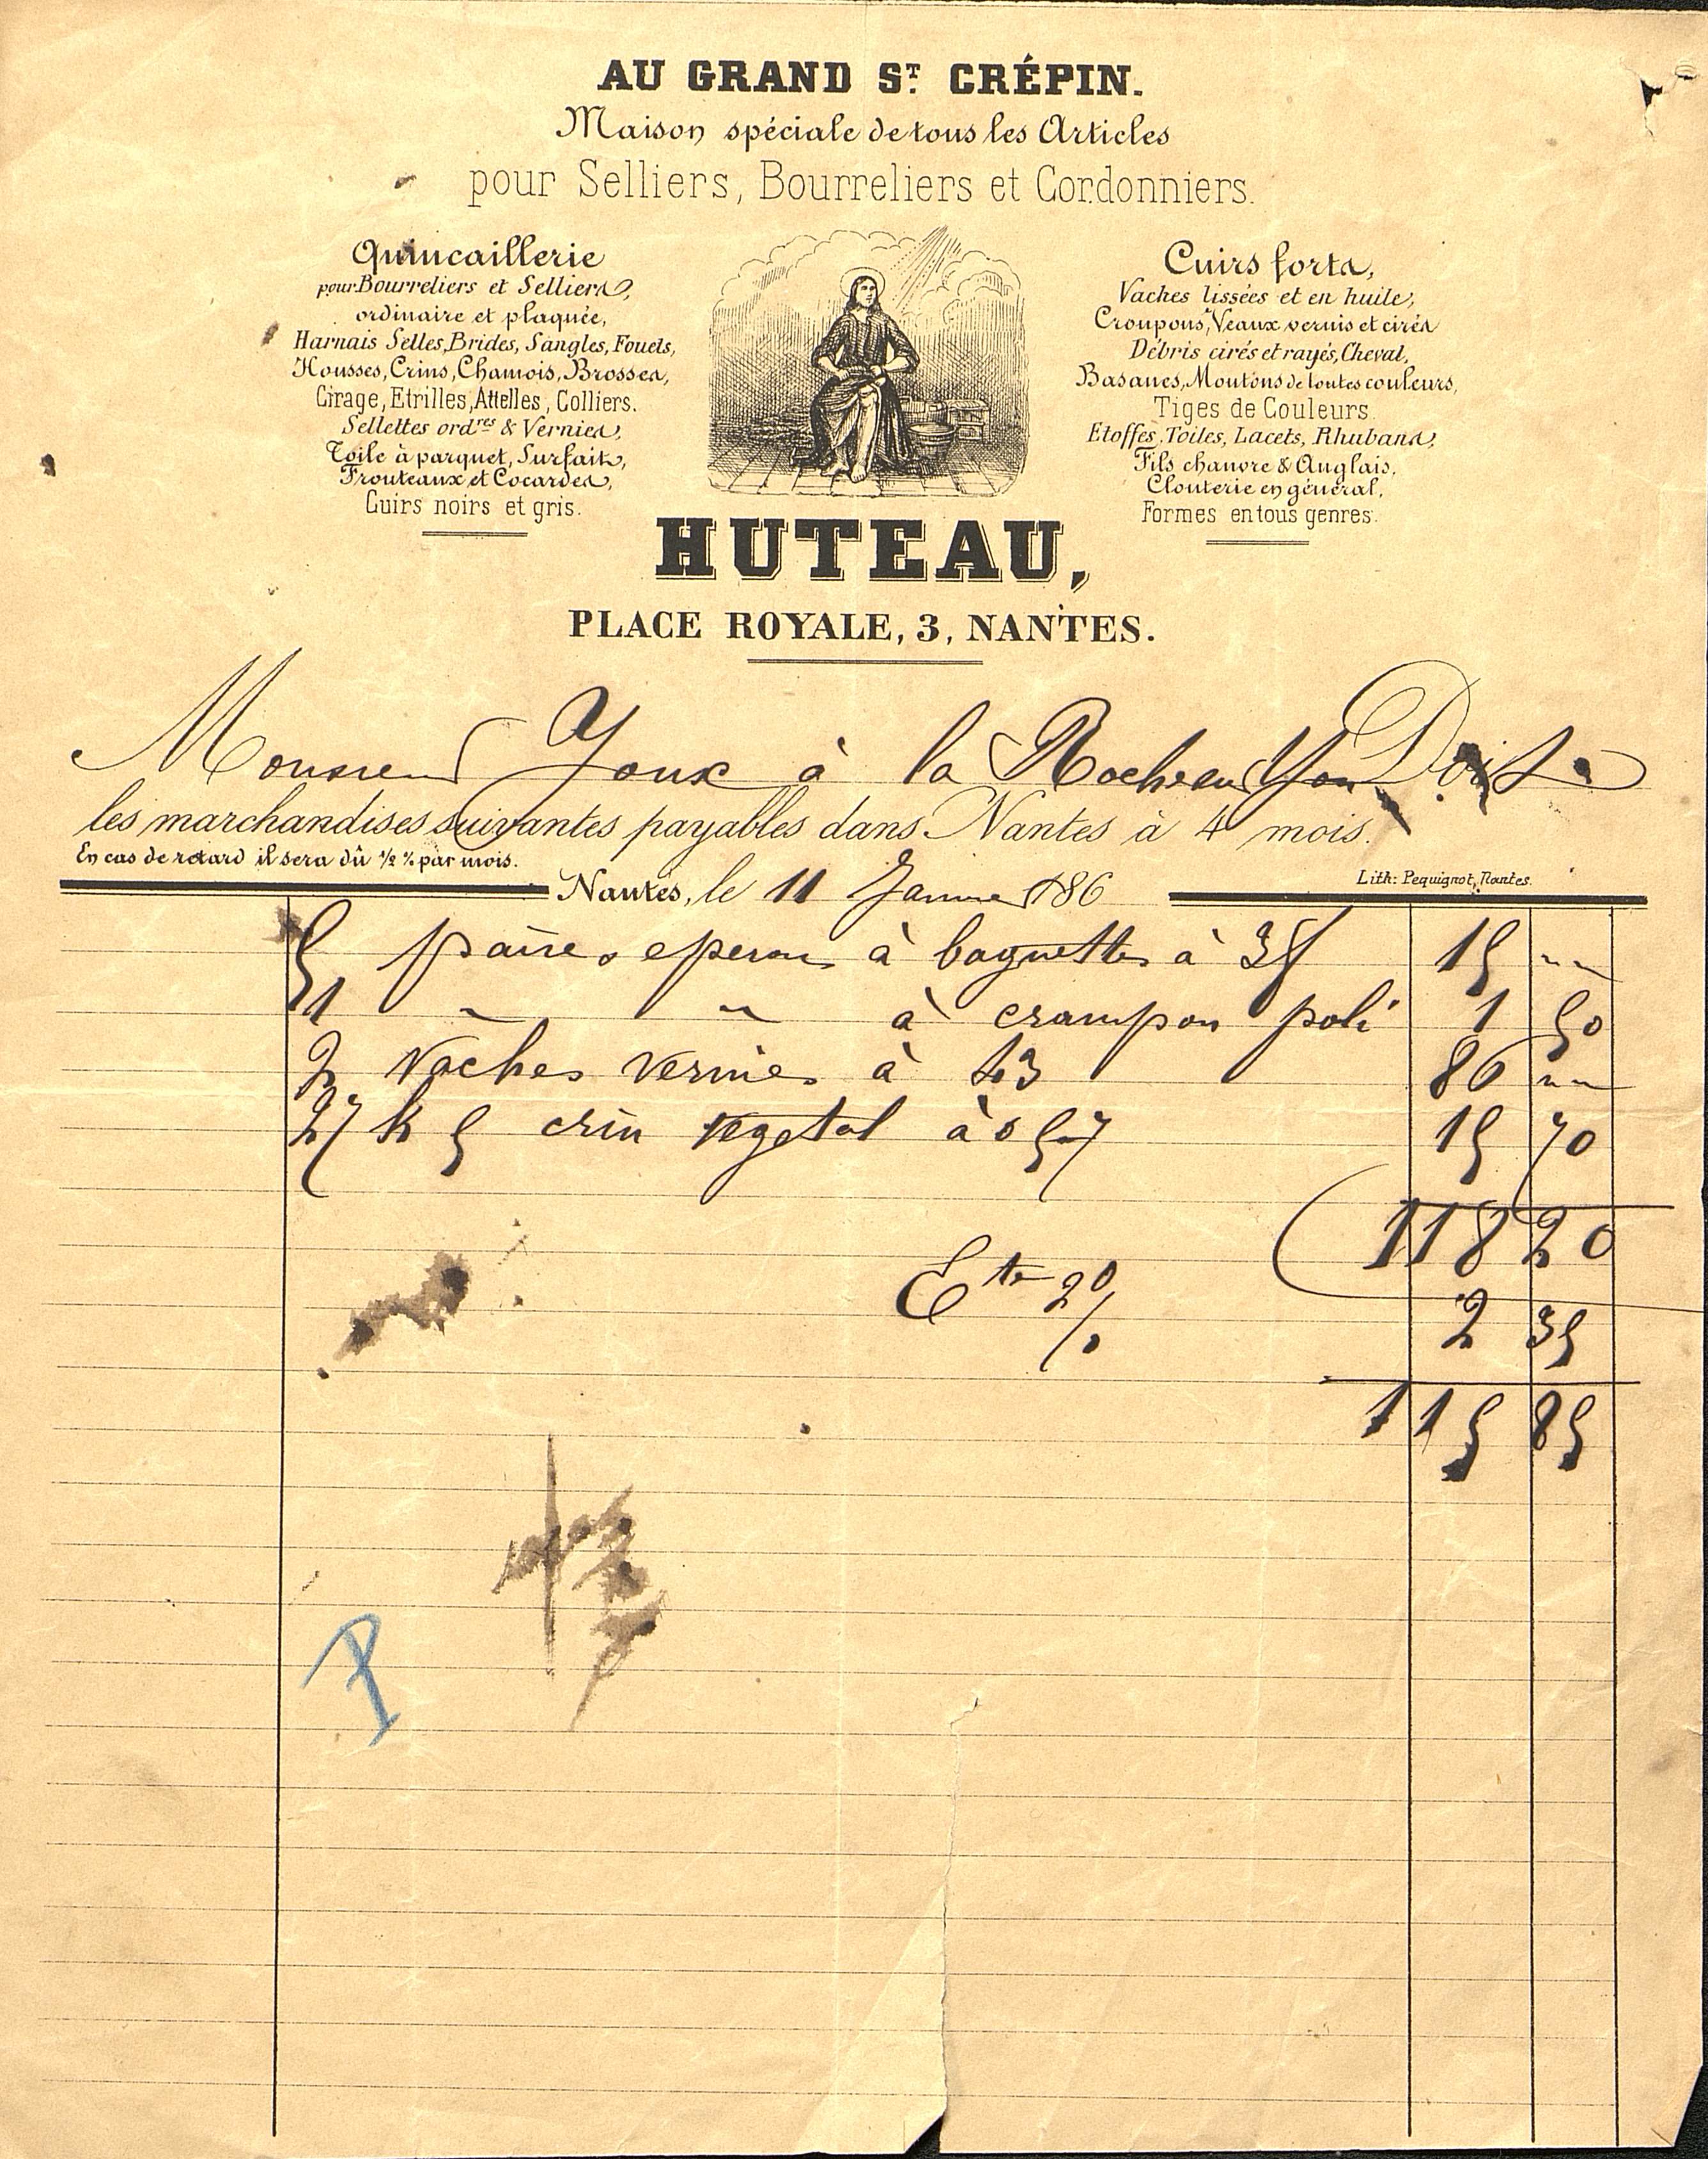 AU GRAND ST. CRÉPIN.
Maison spéciale de tous les Articles
pour Selliers, Bourreliers et Cordonniers.
Quincaillerie
pour Bourreliers et Selliers,
ordinaire et plaquée,
Harnais Selles, Brides, Sangles, Fouets,
Housses, Crins, Chamois, Brosses,
Cirage, Etrilles, Attelles, Colliers.
Sellettes ordres & Vernies,
Toile à parquet, Surfaits,
Fronteaux et Cocardes,
Cuirs noirs et gris.
Cuirs forts,
Vaches lissées et en huile,
Croupons, Veaux vernis et cirés
Débris cirés et rayés, Cheval,
Basanes, Moutons de toutes couleurs,
Tiges de Couleurs.
Etoffes, Toiles, Lacets, Rhubans,
Fils chanvre & Anglais,
Clouterie en général,
Formes en tous genres.
HUTEAU,
PLACE ROYALE, 3, NANTES.
Monsieur Joux à la Roche sur Yon Doit
les marchandises suivantes payables dans Nantes à 4 mois.
En cas de retard il sera dû ½ % par mois.
Lith: Pequignot, Nantes.
Nantes, le 11 Janvier 186
5 paires eperons à baguettes à 3f 15 "
1 " " à crampon poli 1 50
2 Vaches vernies à 43 86 "
27 k 5 crin vegetal à 0 57 15 70
118 20
Ete 2% 2 35
115 85
P